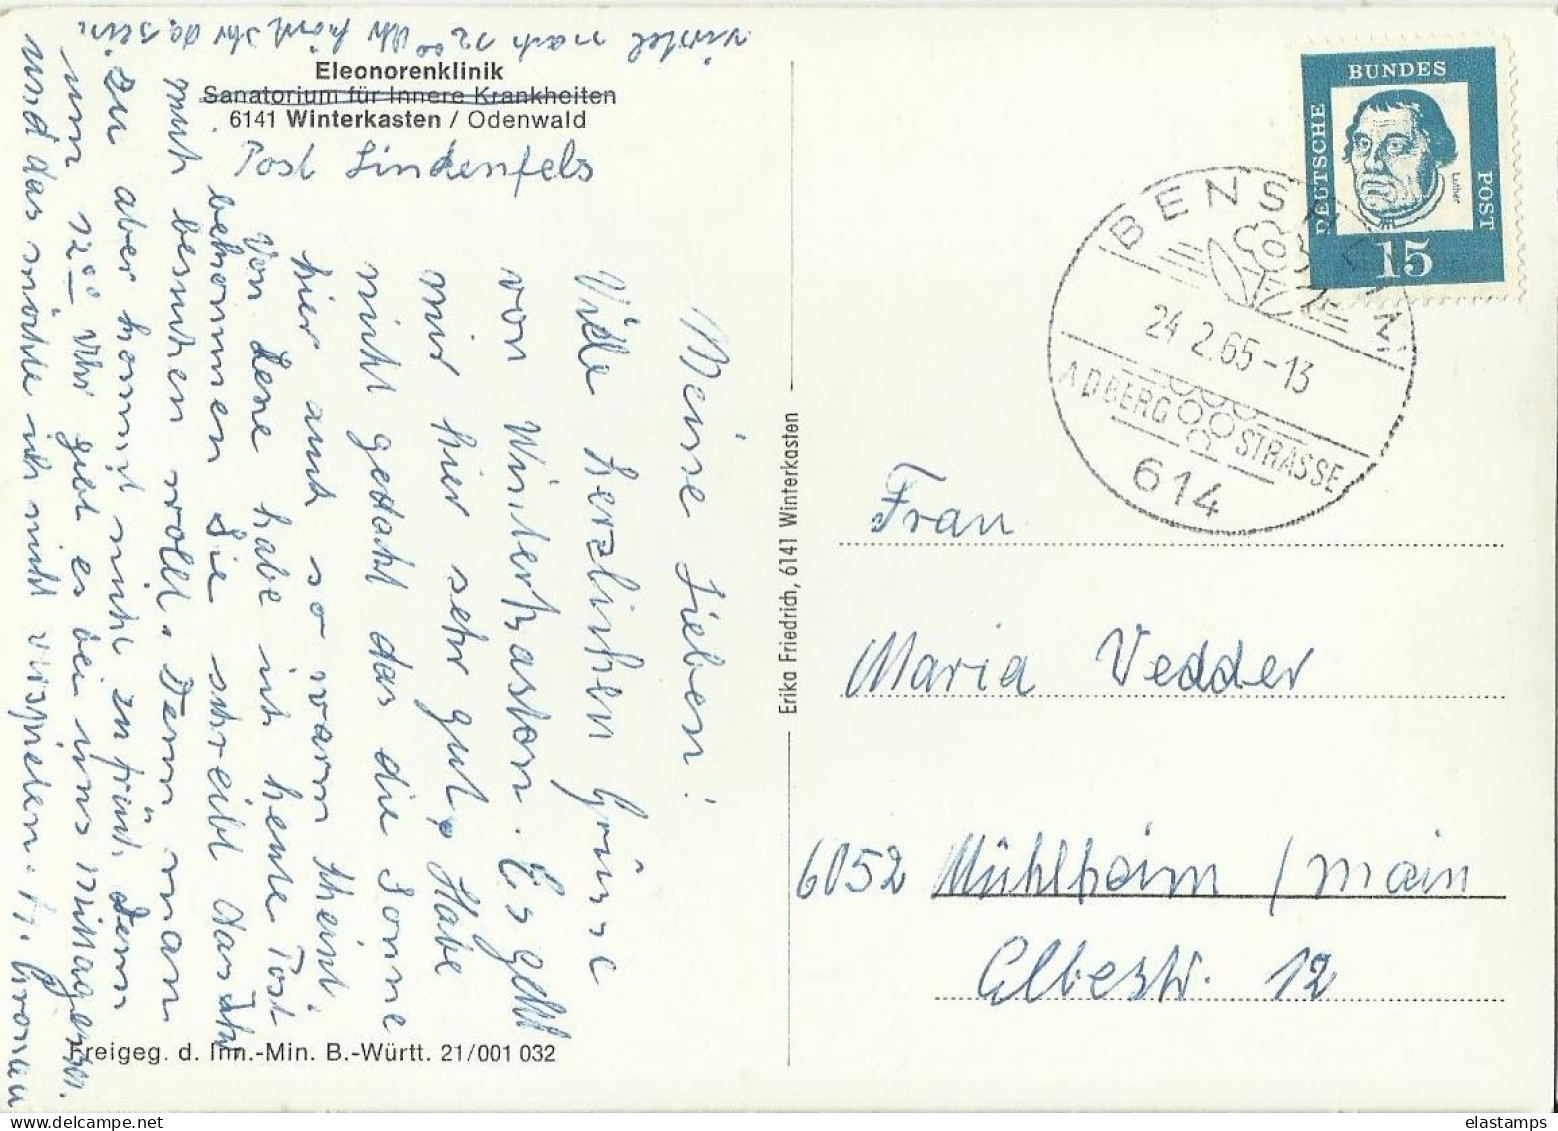 Eleonorenklinik
Sanatorium für Innere Krankheiten
6141 Winterkasten / Odenwald
Post Lindenfels
Meine Lieben!
Viele herzlichen Grüsse
von Winterkasten. Es geht
mir hier sehr gut, Habe
nicht gedacht das die Sonne
hier auch so warm scheint.
Von Lene habe ich heute Post
bekommen Sie schreibt das Ihr
mich besuchen wollt. Denn man
zu aber kommt nicht zu früh. Denn
um 12⁰⁰ Uhr gibt es bei uns Mittagessen.
und das möchte ich nicht verspielen.
viertel nach 12⁰⁰ Uhr könnt Ihr da sein.
Freigeg. d. Inn.-Min. B.-Württ. 21/001 032
Erika Friedrich, 6141 Winterkasten
DEUTSCHE BUNDES POST
Luther
15
BENSHEIM
24.2.65-13
ADBERG STRASSE
614
Frau
Maria Vedder
6052 Mühlheim / Main
Elbestr. 12